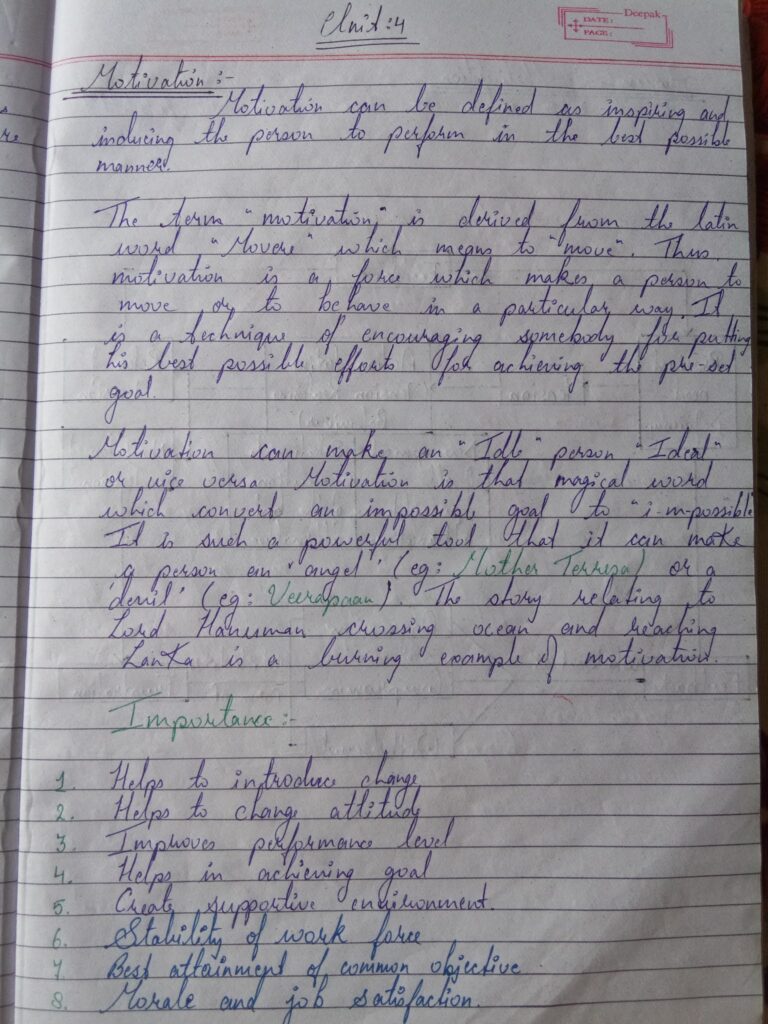 Unit:4
Deepak
DATE:
PAGE:
Motivation:-
Motivation can be defined as inspiring and
inducing the person to perform in the best possible
manner.
The term "motivation" is derived from the latin
word "Movere" which means to "move". Thus,
motivation is a force which makes a person to
move or to behave in a particular way. It
is a technique of encouraging somebody for putting
his best possible efforts for achieving the pre-set
goal.
Motivation can make an "Idle" person "Ideal"
or vice versa Motivation is that magical word
which convert an impossible goal to "i-m-possible"
It is such a powerful tool that it can make
a person an 'angel' (eg: Mother Terresa) or a
'devil' (eg: Veerappan). The story relating to
Lord Hanuman crossing ocean and reaching
Lanka is a burning example of motivation.
Importance:-
1. Helps to introduce change
2. Helps to change attitude
3. Improves performance level
4. Helps in achieving goal
5. Create supportive environment.
6. Stability of work force
7. Best attainment of common objective
8. Morale and job satisfaction.